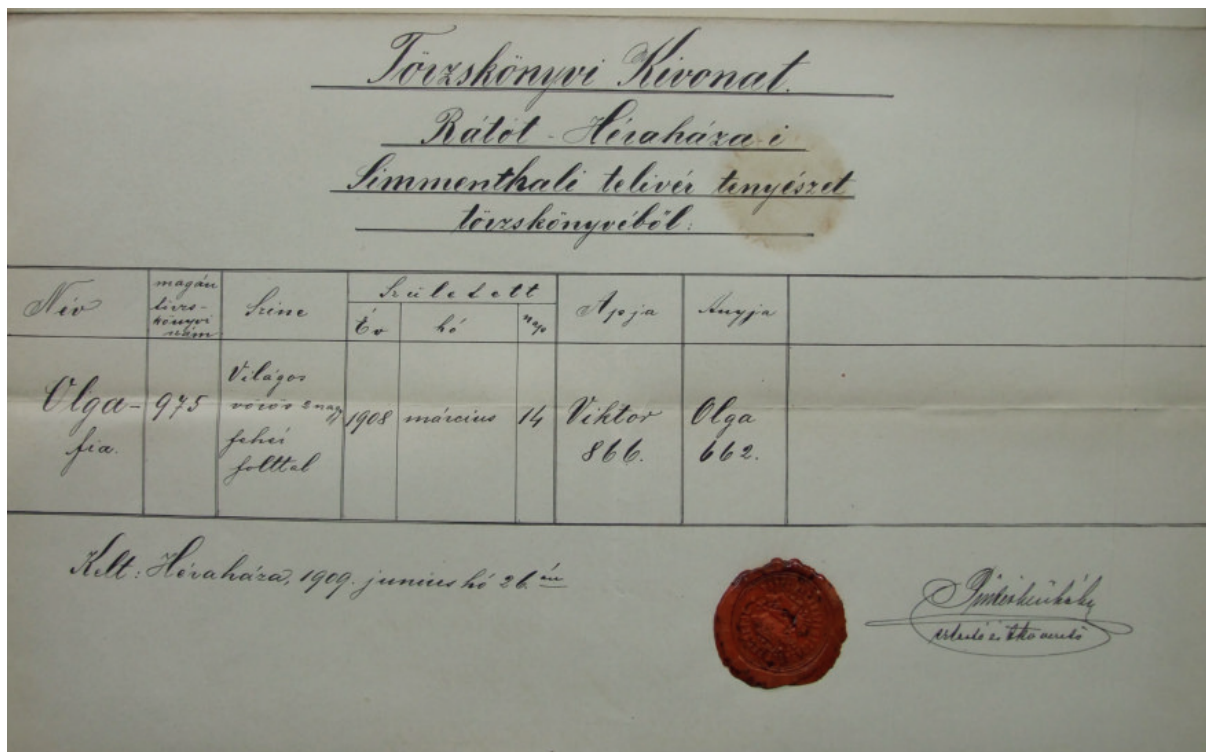 Törzskönyvi Kivonat.
Rátót - Héraháza-i
Simmenthali telivér tenyészet
törzskönyvéből:
Név
magán
törzs-
könyvi
szám
Szine
Született
Év
hó
nap
Apja
Anyja
Olga-
fia.
975
Világos
vörös 2 nagy
fehér
folttal
1908
március
14
Viktor
866.
Olga
662.
Kelt: Héraháza, 1909. junius hó 26.án